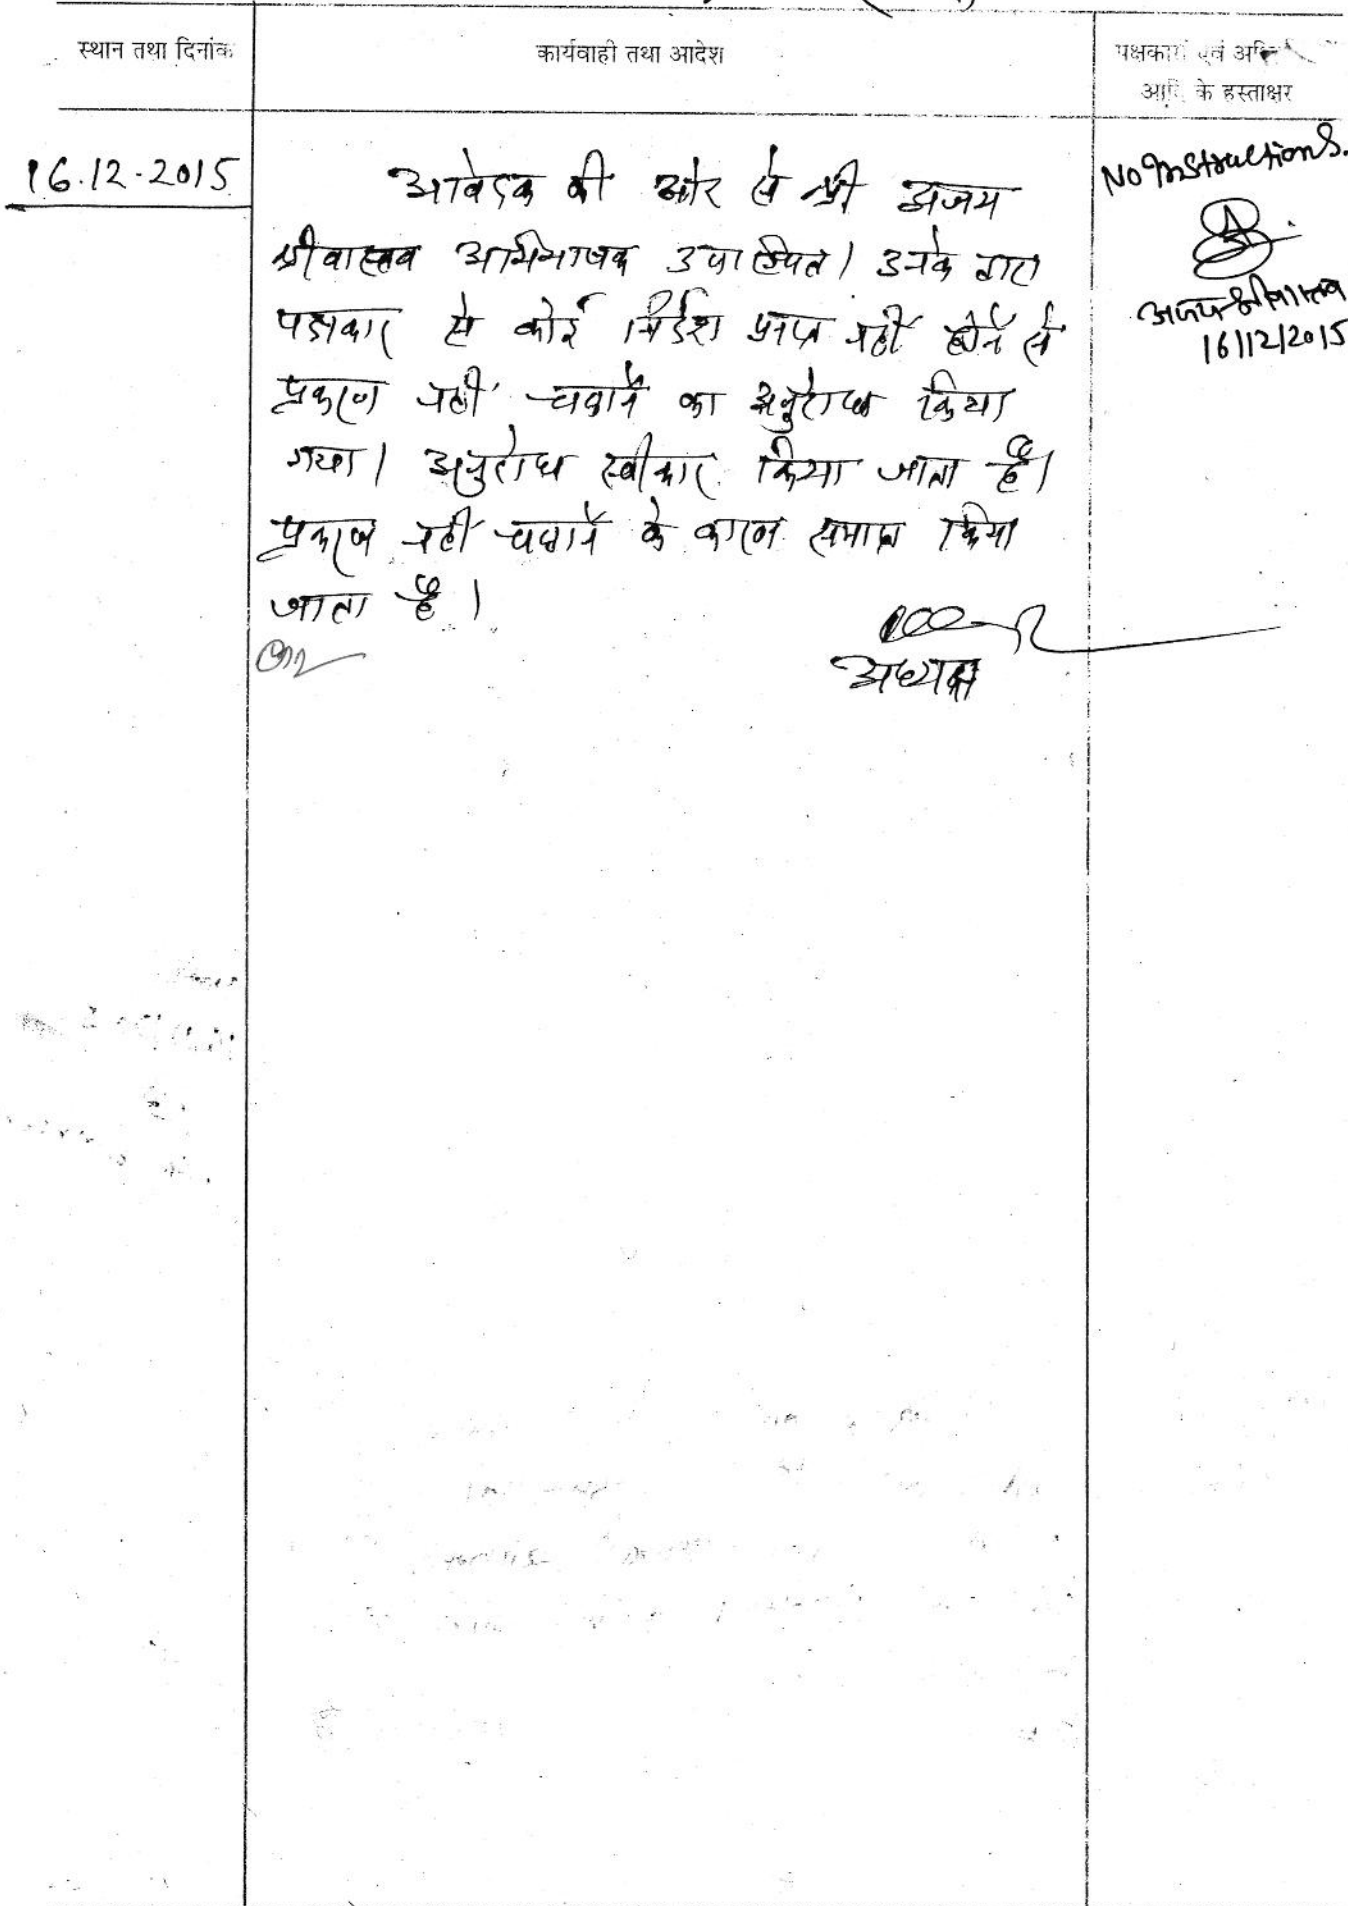 स्थान तथा दिनांक
कार्यवाही तथा आदेश
पक्षकारों एवं
आदि के हस्ताक्षर
16.12.2015
आवेदक की ओर से श्री अजय
श्रीवास्तव अभिभाषक उपस्थित। उनके द्वारा
पक्षकार से कोई निर्देश प्राप्त नहीं होने से
प्रकरण नहीं चलाने का अनुरोध किया
गया। अनुरोध स्वीकार किया जाता है।
प्रकरण नहीं चलाने के कारण समाप्त किया
जाता है।
अध्यक्ष
No Instructions.
अजय श्रीवास्तव
16/12/2015